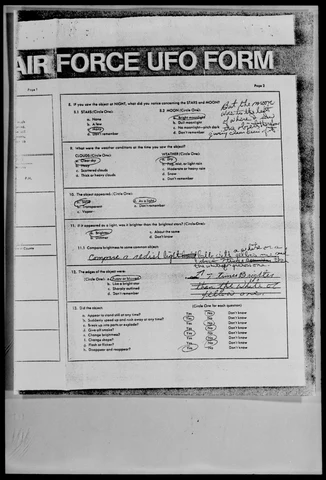 AIR FORCE UFO FORM
Page 1
Page 2
8. If you saw the object at NIGHT, what did you notice concerning the STARS and MOON?
8.1 STARS (Circle One):
a. None
b. A few
c. Many
d. Don't remember
8.2 MOON (Circle One):
a. Bright moonlight
b. Dull moonlight
c. No moonlight—pitch dark
d. Don't remember
But the moon
was to the
of where I saw
9. What were the weather conditions at the time you saw the object?
CLOUDS (Circle One):
a. Clear sky
b. Hazy
c. Scattered clouds
d. Thick or heavy clouds
WEATHER (Circle One):
a. Dry
b. Fog, mist, or light rain
c. Moderate or heavy rain
d. Snow
e. Don't remember
10. The object appeared: (Circle One):
a. Solid
b. Transparent
c. Vapor
d. As a light
e. Don't remember
11. If it appeared as a light, was it brighter than the brightest stars? (Circle One):
a. Brighter
b. Dimmer
c. About the same
d. Don't know
11.1 Compare brightness to some common object:
Compare a
12. The edges of the object were:
(Circle One):
a. Fuzzy or blurred
b. Like a bright star
c. Sharply outlined
d. Don't remember
7 Times Brighter
than the white or
yellow one.
13. Did the object:
(Circle One for each question)
a. Appear to stand still at any time? Yes No Don't know
b. Suddenly speed up and rush away at any time? Yes No Don't know
c. Break up into parts or explode? Yes No Don't know
d. Give off smoke? Yes No Don't know
e. Change brightness? Yes No Don't know
f. Change shape? Yes No Don't know
g. Flash or flicker? Yes No Don't know
h. Disappear and reappear? Yes No Don't know